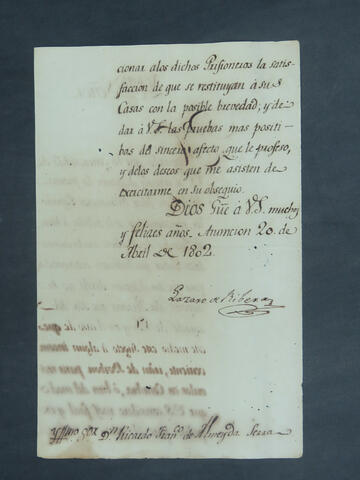 cionar alos dichos Prisioneros la satis-
faccion de que se restituyan à sus
Casas con la posible brevedad; y de
dar à V.S. las pruebas mas positi-
bas del sincero afecto que le profeso,
y delos deseos que me asisten de
exercitarme en su obsequio.
Dios gũe à V.S. muchos
y felizes años. Asuncion 20. de
Abril de 1802.
Lazaro de Ribera
Yllmo Sor. Dn. Ricardo Franco. de Almeyda Serra